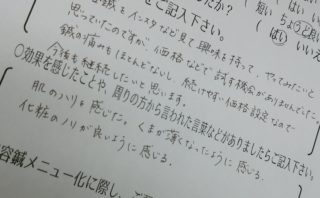 たか？
ご記入下さい。
短い ちょうど良い
(はい) いいえ
容鍼をインスタなど見て興味を持って、やってみたいと
思っていたのですが、価格などで試す機会がありませんでした。
鍼の痛みもほとんどないし、続けやすい価格設定なので
今後も継続したいと思います。
○効果を感じたことや、周りの方から言われた言葉などがありましたらご記入下さい。
肌のハリを感じた。くまが薄くなったように感じる。
化粧のノリが良いように感じる。
容鍼メニュー化に際し、ご